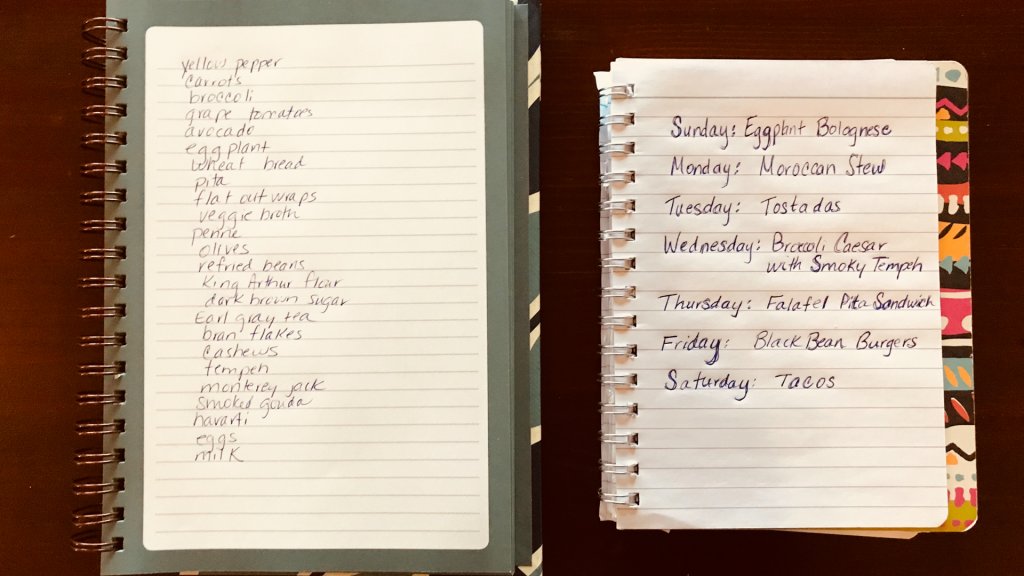 yellow pepper
carrots
broccoli
grape tomatoes
avocado
eggplant
wheat bread
pita
flat out wraps
veggie broth
penne
olives
refried beans
King Arthur flour
dark brown sugar
Earl gray tea
bran flakes
cashews
tempeh
monterey jack
smoked gouda
havarti
eggs
milk
Sunday: Eggplant Bolognese
Monday: Moroccan Stew
Tuesday: Tostadas
Wednesday: Broccoli Caesar
with Smoky Tempeh
Thursday: Falafel Pita Sandwich
Friday: Black Bean Burgers
Saturday: Tacos